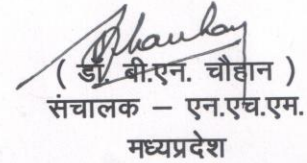 ( डॉ. बी.एन. चौहान )
संचालक – एन.एच.एम.
मध्यप्रदेश